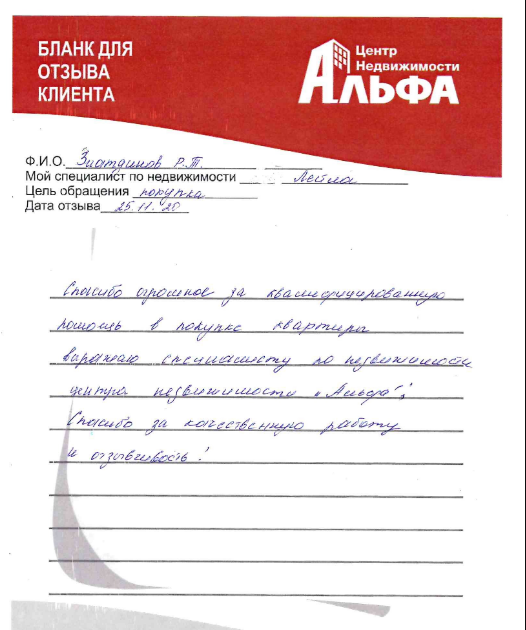 БЛАНК ДЛЯ
ОТЗЫВА
КЛИЕНТА
Центр
Недвижимости
АЛЬФА
Ф.И.О. Зиатдинов Р.Т.
Мой специалист по недвижимости Лейла
Цель обращения покупка
Дата отзыва 25.11.20
Спасибо огромное за квалифицированную
помощь в покупке квартиры
выражаю специалисту по недвижимости
центра недвижимости "Альфа",
Спасибо за качественную работу
и отзывчивость!